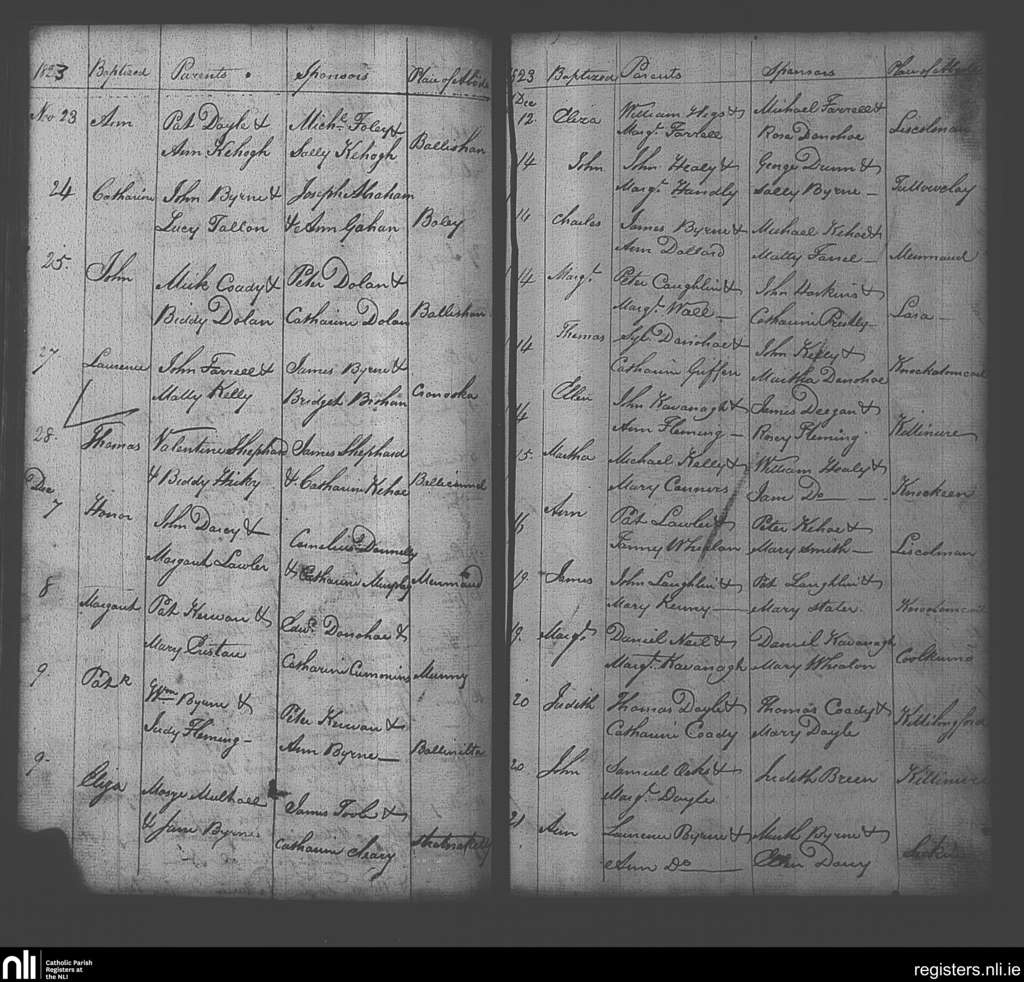 1823 Baptized Parents Sponsors Place of Abode
Nov 23 Ann Pat Doyle & Michl Foley &
Ann Kehogh Sally Kehogh Ballishan
24 Catharine John Byrne & Joseph Abraham
Lucy Tallon & Ann Gahan Boley
25. John Mick Coady & Peter Dolan &
Biddy Dolan Catharine Dolan Ballishan
27 Laurence John Farrell & James Byrne &
Matty Kelly Bridget Cronoska
28. Thomas Valentine Shephard James Shephard
& Biddy Hicky & Catharine Kehoe
Dec
7 Honor John Darcy & Cornelius Donnelly
Margaret Lawler & Catharine Murphy Menmaud
8 Margaret Pat Kerwan & Edwd Donohoe &
Mary Catharin Cummins Munny
9. Patk Wm Byrne & Peter Kerwan &
Judy Fleming - Ann Byrne —
9. Eliza Mosye Mulhall James Toole &
& Jane Byrne Catharin
1823 Baptized Parents Sponsors Place of Abode
Dec
12. Eliza William Higs & Michael Farrell &
Margt Farrell Rose Donohoe Liscolman
14 John John Healy & George Dunn &
Margt Handly Sally Byrne — Tullowclay
14 Charles James Byrne & Michael Kehoe &
Ann Dollard Matty Farrel — Menmaud
14 Margt Peter Caughlin & John Harkins &
Margt Wall — Catharin Lara —
14 Thomas Syl. Donohoe & John Kelly &
Catharin Griffen Martha Donohoe
14 Ellen John Kavanagh & James Deegan &
Ann Fleming — Rosey Fleming Killinure
15. Martha Michael Kelly & William Healy &
Mary Connors Jane Do — Knockeen
16 Ann Pat Lawler & Peter Kehoe &
Fanny Whealon Mary Smith — Liscolman
19. James John Laughlin & Pat Laughlin &
Mary Kenny — Mary Slater.
19. Margt Daniel Neil & Daniel Kavanagh
Margt Kavanagh Mary Whealon
20 Judith Thomas Doyle & Thomas Coady &
Catharin Coady Mary Doyle
20. John Samuel Oaks & Judith Breen Killinure
Margt Doyle
21 Ann Laurence Byrne & Byrne &
Ann Do — Ellen Darcy
nli Catholic Parish
Registers at
the NLI
registers.nli.ie